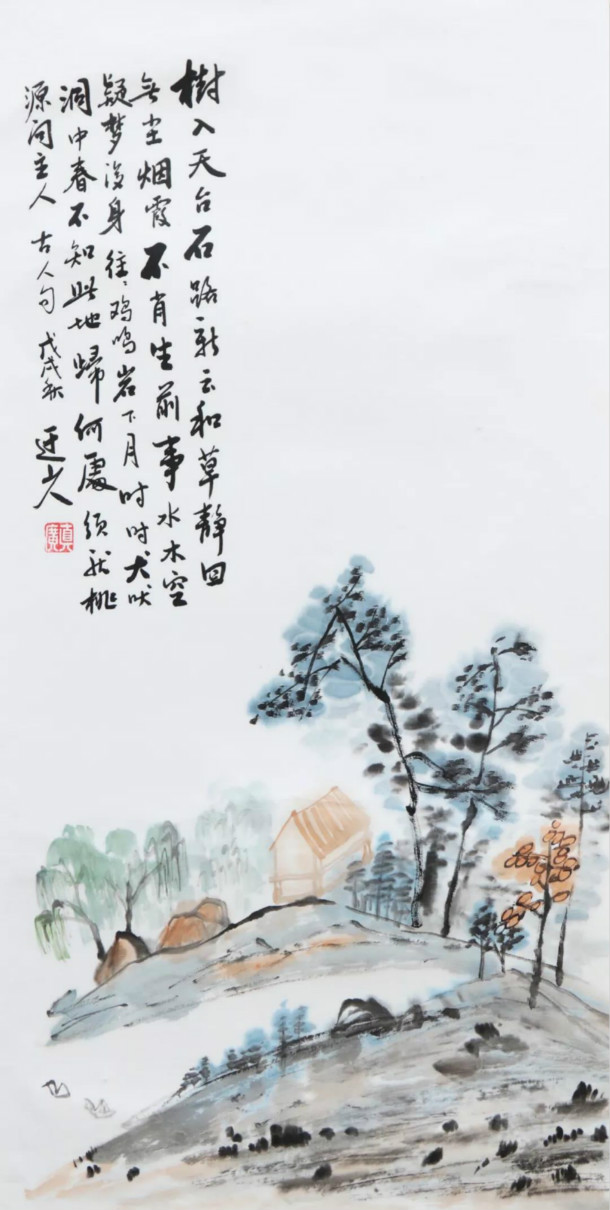 樹入天台石路新云和草静回
無尘烟霞不肖生前事水木空
疑梦後身往々鸡鸣岩下月时时犬吠
洞中春不知此地歸何處须就桃
源问主人 古人句 戊戌秋